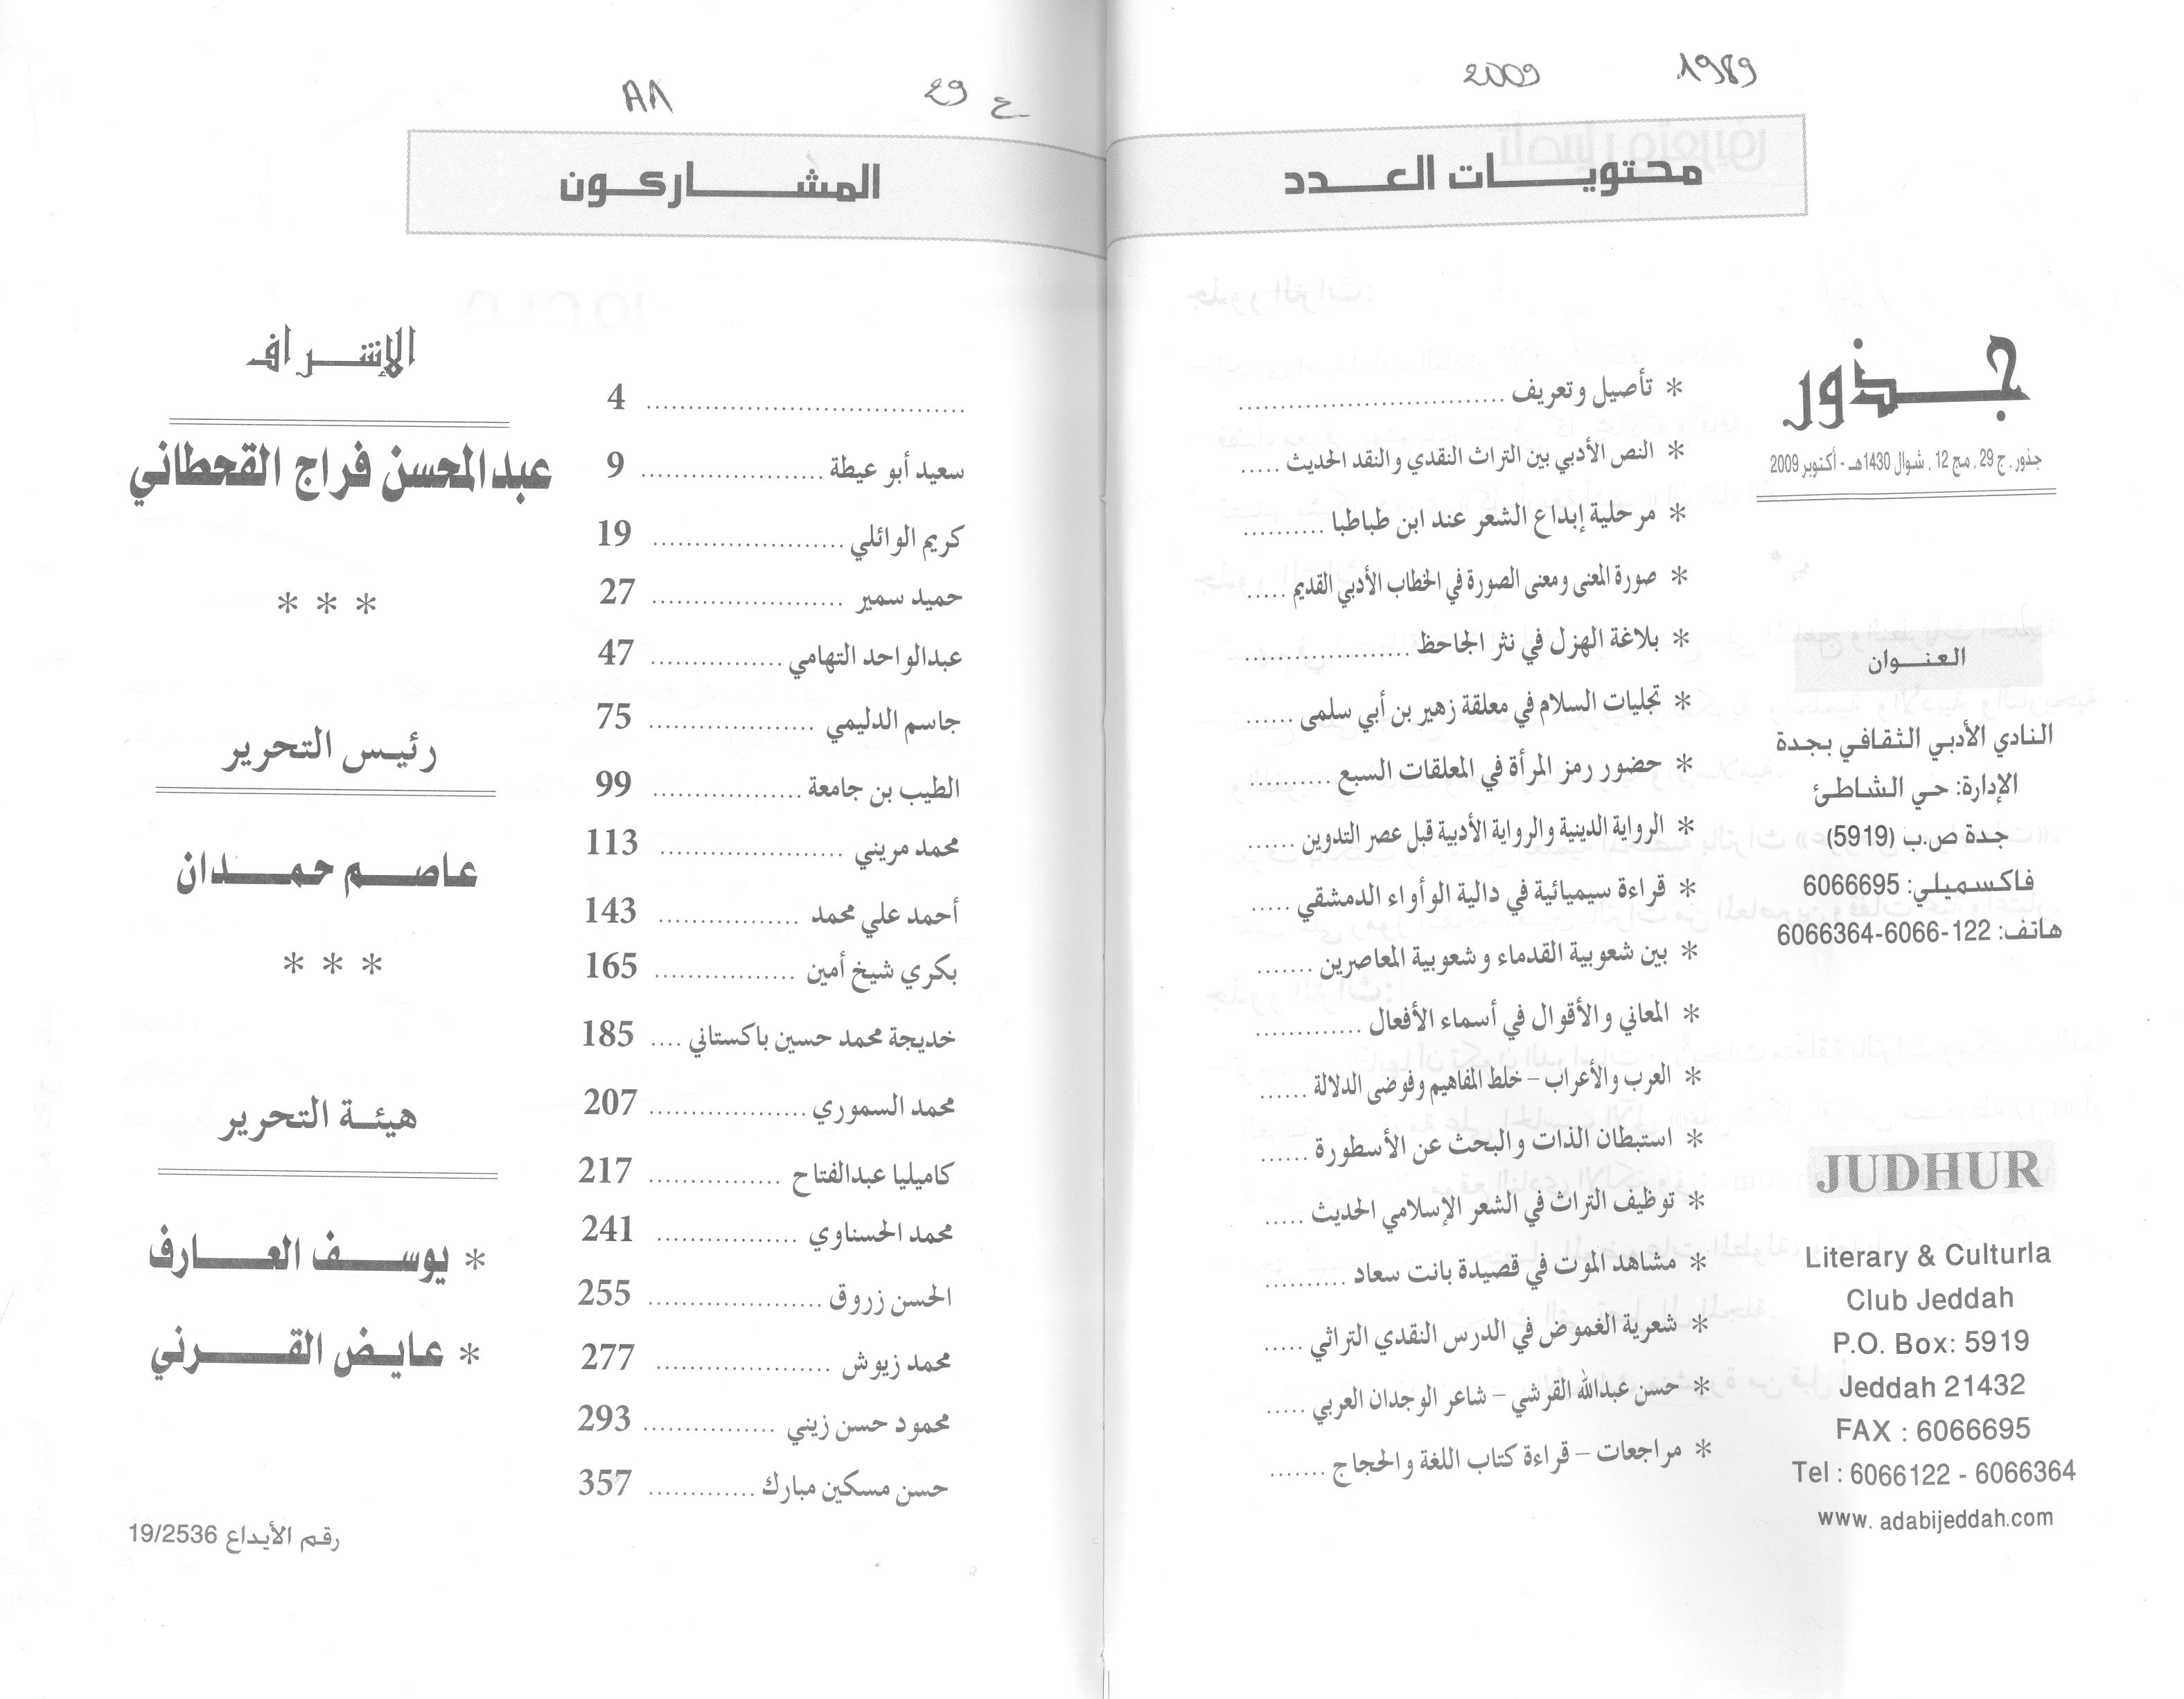 1989
2009
محتويات العدد
جذور
جذور. ج 29 . مج 12 . شوال 1430هـ - أكتوبر 2009
العنوان
النادي الأدبي الثقافي بجدة
الإدارة: حي الشاطئ
جدة ص.ب (5919)
فاكسميلي: 6066695
هاتف: 122-6066-6066364
JUDHUR
Literary & Culturla
Club Jeddah
P.O. Box: 5919
Jeddah 21432
FAX : 6066695
Tel : 6066122 - 6066364
www. adabijeddah.com
* تأصيل وتعريف
* النص الأدبي بين التراث النقدي والنقد الحديث
* مرحلية إبداع الشعر عند ابن طباطبا
* صورة المعنى ومعنى الصورة في الخطاب الأدبي القديم
* بلاغة الهزل في نثر الجاحظ
* تجليات السلام في معلقة زهير بن أبي سلمى
* حضور رمز المرأة في المعلقات السبع
* الرواية الدينية والرواية الأدبية قبل عصر التدوين
* قراءة سيميائية في دالية الوأواء الدمشقي
* بين شعوبية القدماء وشعوبية المعاصرين
* المعاني والأقوال في أسماء الأفعال
* العرب والأعراب – خلط المفاهيم وفوضى الدلالة
* استبطان الذات والبحث عن الأسطورة
* توظيف التراث في الشعر الإسلامي الحديث
* مشاهد الموت في قصيدة بانت سعاد
* شعرية الغموض في الدرس النقدي التراثي
* حسن عبدالله القرشي – شاعر الوجدان العربي
* مراجعات – قراءة كتاب اللغة والحجاج
ع 29
المشاركون
4
سعيد أبو عيطة 9
كريم الوائلي 19
حميد سمير 27
عبدالواحد التهامي 47
جاسم الدليمي 75
الطيب بن جامعة 99
محمد مريني 113
أحمد علي محمد 143
بكري شيخ أمين 165
خديجة محمد حسين باكستاني 185
محمد السموري 207
كاميليا عبدالفتاح 217
محمد الحسناوي 241
الحسن زروق 255
محمد زيوش 277
محمود حسن زيني 293
حسن مسكين مبارك 357
الإشراف
عبدالمحسن فراج القحطاني
* * *
رئيس التحرير
عاصم حمدان
* * *
هيئة التحرير
* يوسف العارف
* عايض القرني
رقم الأيداع 19/2536